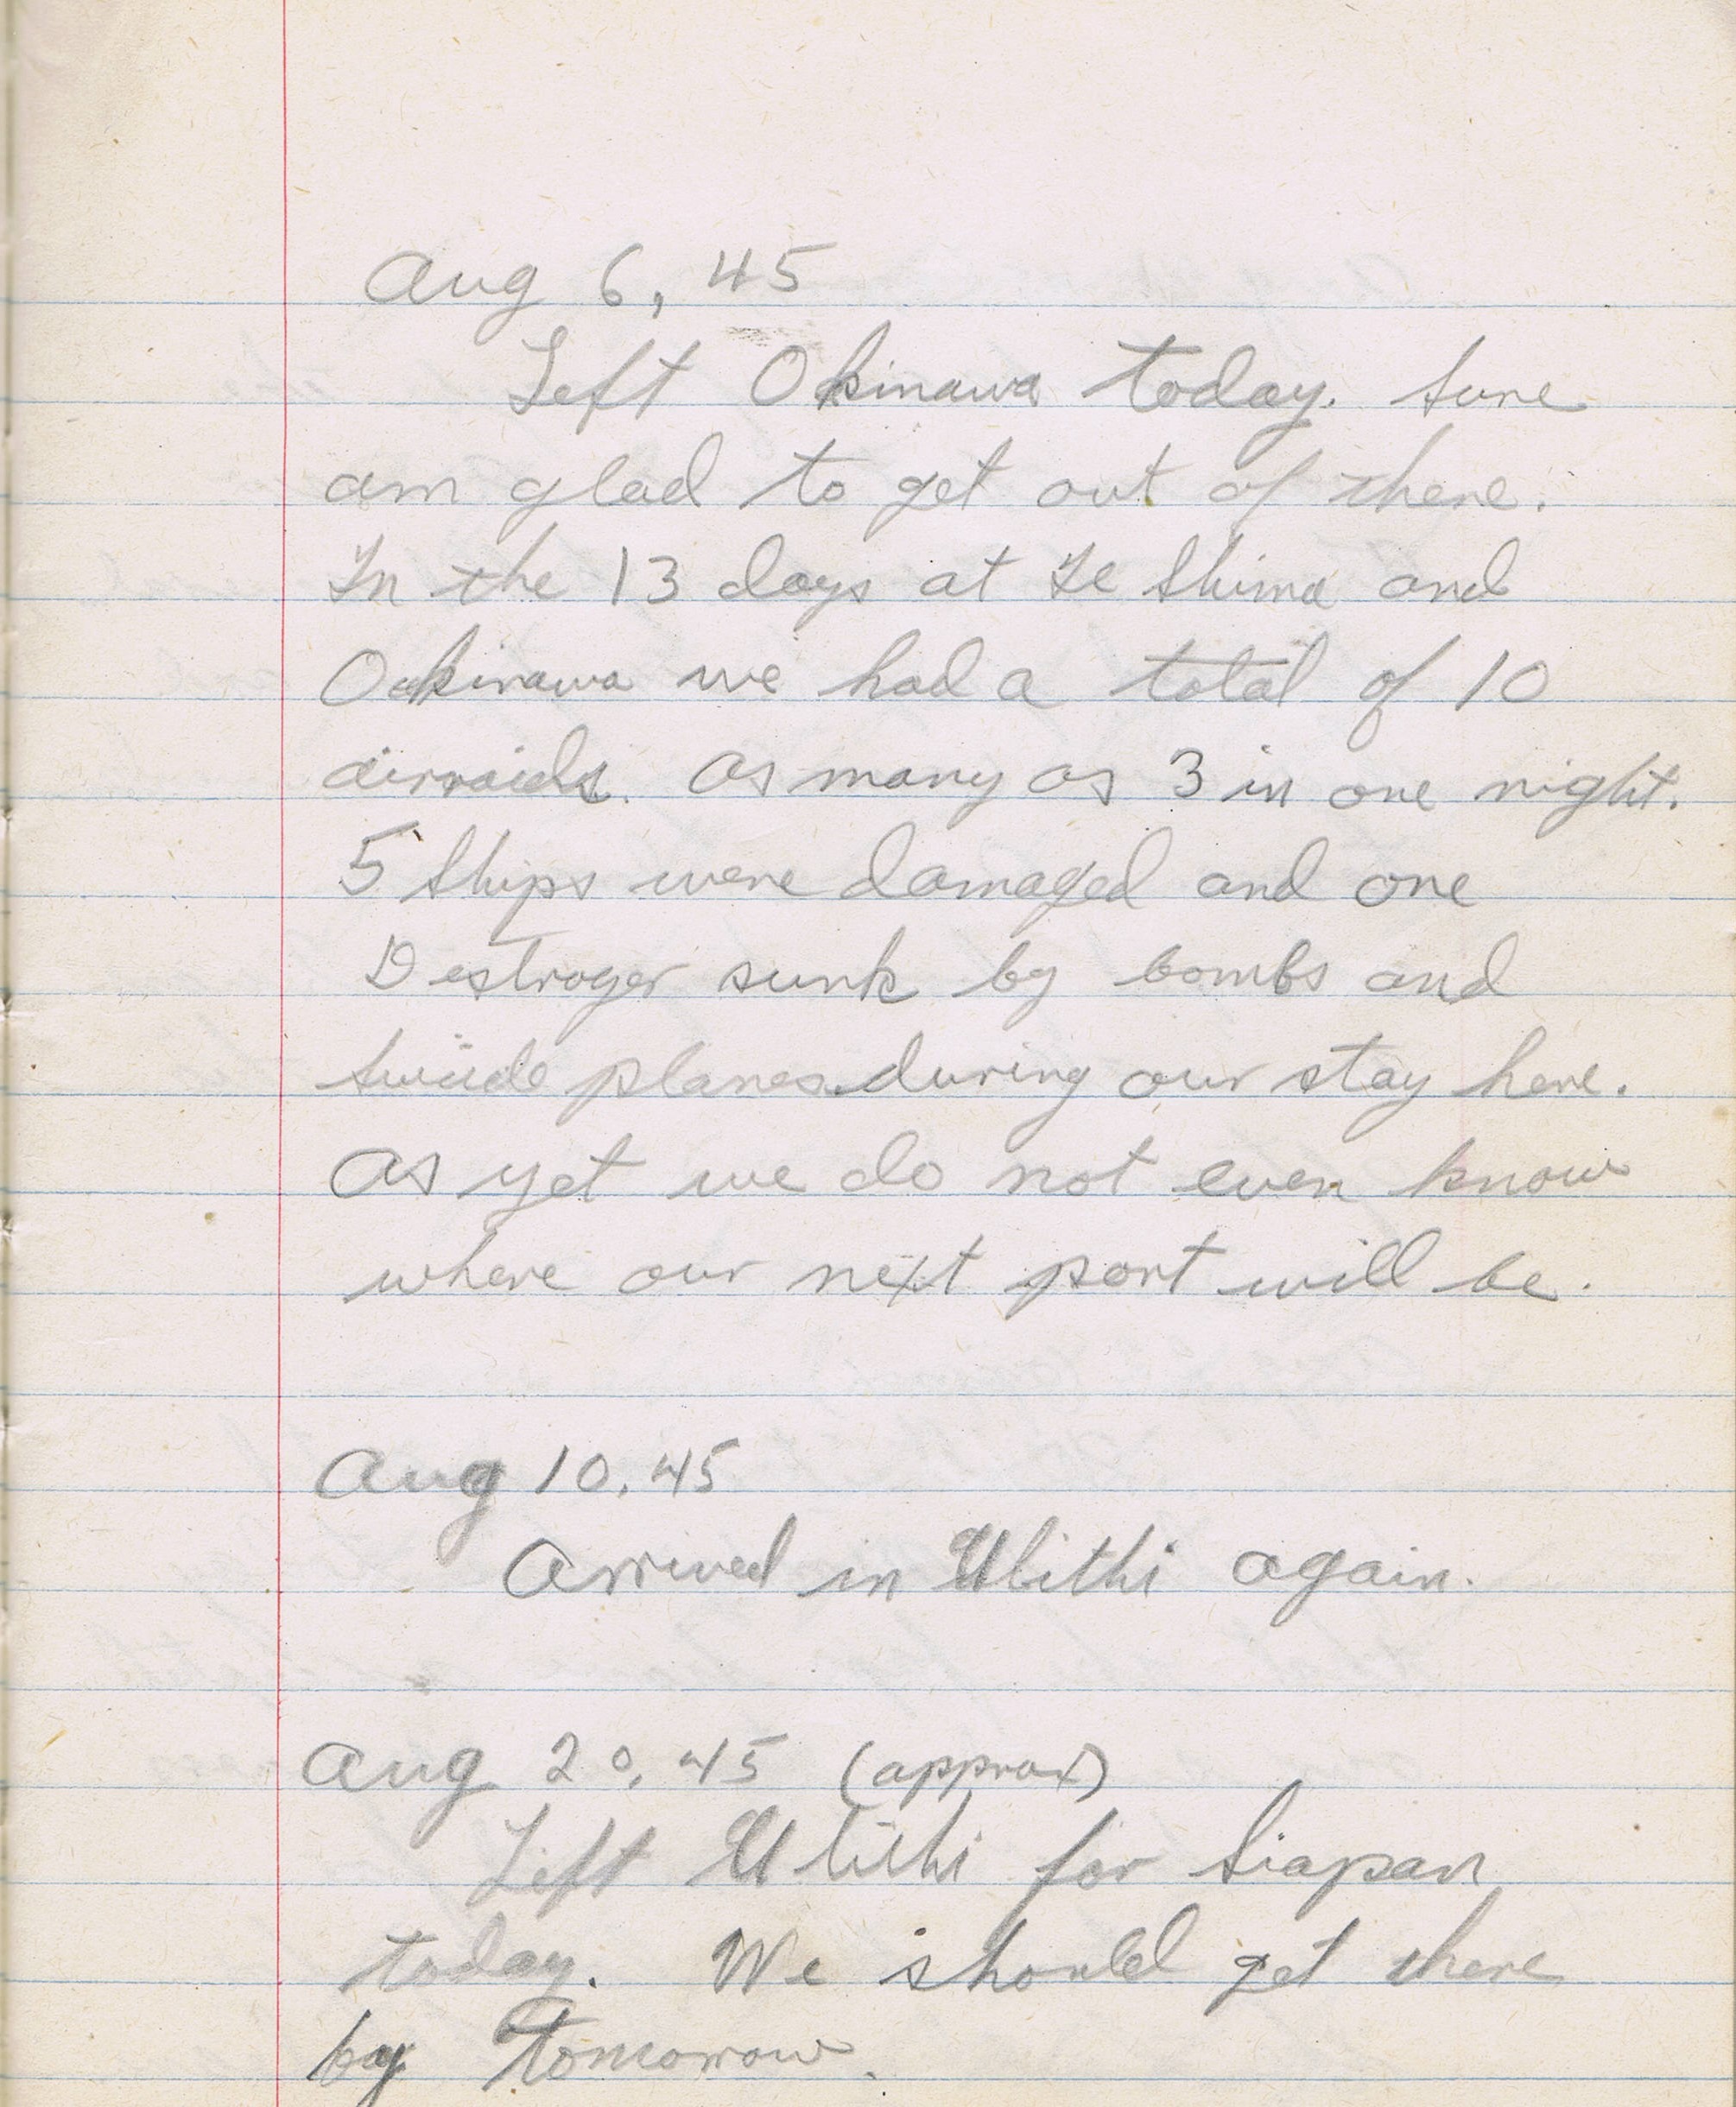 Aug 6, 45
Left Okinawa today. Sure
am glad to get out of there.
In the 13 days at Ie Shima and
Okinawa we had a total of 10
airraids. As many as 3 in one night.
5 ships were damaged and one
Destroyer sunk by bombs and
suicide planes during our stay here.
As yet we do not even know
where our next port will be.
Aug 10, 45
Arrived in Ulithi again.
Aug 20, 45 (approx)
Left Ulithi for Siapan
today. We should get there
by tomorrow.